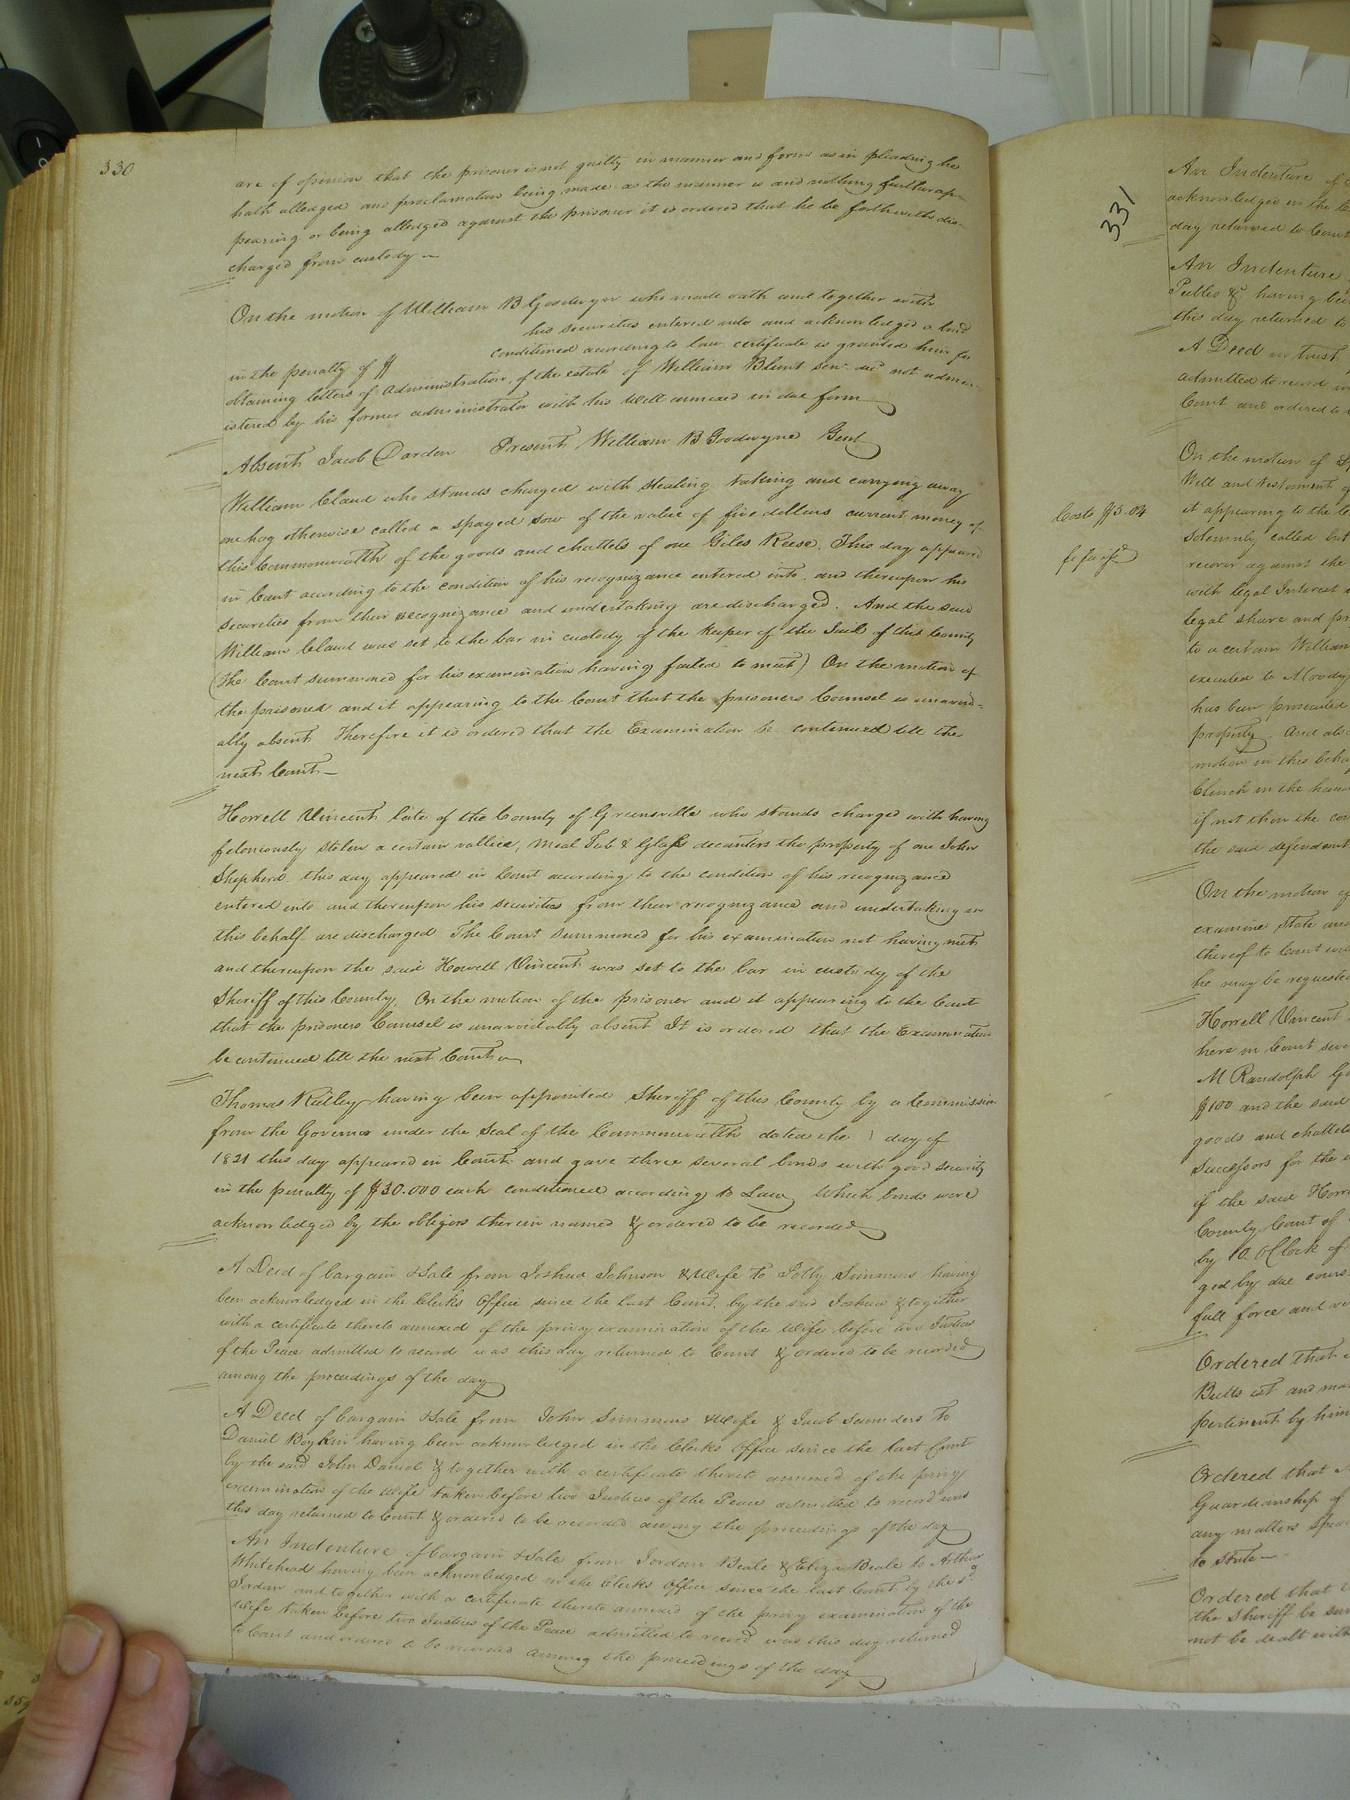 330
are of opinion that the prisoner is not guilty in manner and form as in pleading he
hath alledged and proclamation being made as the manner is and nothing further ap-
pearing or being alledged against the prisoner it is ordered that he be forthwith dis-
charged from custody
On the motion of William B Goodwyn who made oath and together with
his securities entered into and acknowledged a bond
in the penalty of $ conditioned acording to law certificate is granted him for
obtaining letters of Administration of the estate of William Blunt senr decd not admin-
istered by his former administrator with his Will annexed in due form
Absent Jacob Darden Present William B Goodwyne Gent
William Claud who stands charged with stealing taking and carrying away
one hog otherwise called a spayed sow of the value of five dollars current money of
this Commonwealth of the goods and chattels of one Giles Reese. This day appeared
in Court acording to the condition of his recognizance entered into and thereupon his
securities from their recognizance and undertaking are discharged. And the said
William Claud was set to the bar in custody of the keeper of the Jail of this County
(The Court summoned for his examination having failed to meet) On the motion of
the prisoner and it appearing to the Court that the prisoners Counsel is unavoid-
ably absent Therefore it is ordered that the Examination be continued till the
next Court
Horrell Vincent late of the County of Greensville who stands charged with having
feloniously stolen a certain vallice, Meal Tub & Glass decanters the property of one John
Shepherd this day appeared in Court acording to the condition of his recognizance
entered into and thereupon his securities from their recognizance and undertaking in
this behalf are discharged The Court summoned for his examination not having met
and thereupon the said Howell Vincent was set to the bar in custody of the
Sheriff of this County. On the motion of the prisoner and it appearing to the Court
that the prisoners Counsel is unavoidably absent It is ordered that the Examination
be continued till the next Court
Thomas Ridley having been appointed Sheriff of this County by a Commission
from the Governor under the Seal of the Commonwealth dated the day of
1821 this day appeared in Court and gave three several bonds with good security
in the penalty of $30.000 each conditioned acording to Law Which bonds were
acknowledged by the obligors therein named & ordered to be recorded
A Deed of bargain & Sale from Joshua Johnson & Wife to Polly Simmons having
been acknowledged in the Clerks Office since the last Court by the said Joshua & together
with a certificate thereto annexed of the privy examination of the Wife before two Justices
of the Peace admitted to record was this day returned to Court & ordered to be recorded
among the proceedings of the day
A Deed of bargain & Sale from John Simmons & Wife & Jacob Saunders To
Daniel Boykin having been acknowledged in the Clerks Office since the last Court
by the said John Daniel & together with a certificate thereto annexed of the privy
examination of the Wife taken before two Justices of the Peace admitted to record was
this day returned to Court & ordered to be recorded among the proceedings of the day
An Indenture of bargain & Sale from Jordan Beale & Eliza Beale to Arthur
Whitehead having been acknowledged in the Clerks Office since the last Court by the sd.
Jordan and together with a certificate thereto annexed of the privy examination of the
Wife taken before two Justices of the Peace admitted to record was this day returned
to Court and ordered to be recorded among the proceedings of the day
331
An Indenture of
acknowledged in the
day returned to Court
An Indenture
Peebles & having been
this day returned to
A Deed in trust
admitted to record
Court and ordered to
On the motion of
Will and testament
Costs $5.04
it appearing to the
solemnly called but
recover against the
with legal Interest
legal share and
to a certain William
executed to Moody
has been prosecuted
property. And
motion in this behalf
Clinch in the hands
if not then the
the said defendant
On the motion of
examine State and
thereof to Court
he may be requested
Horrell Vincent
here in Court
M Randolph
$100 and the said
goods and chattels
Successors for the
if the said Horrell
County Court of
by 10. O'Clock of
ged by due course
full force and
Ordered that
Butts
pertinent by him
Ordered that
Guardianship of
any matters
to state
Ordered that
the Sheriff be
not be dealt with